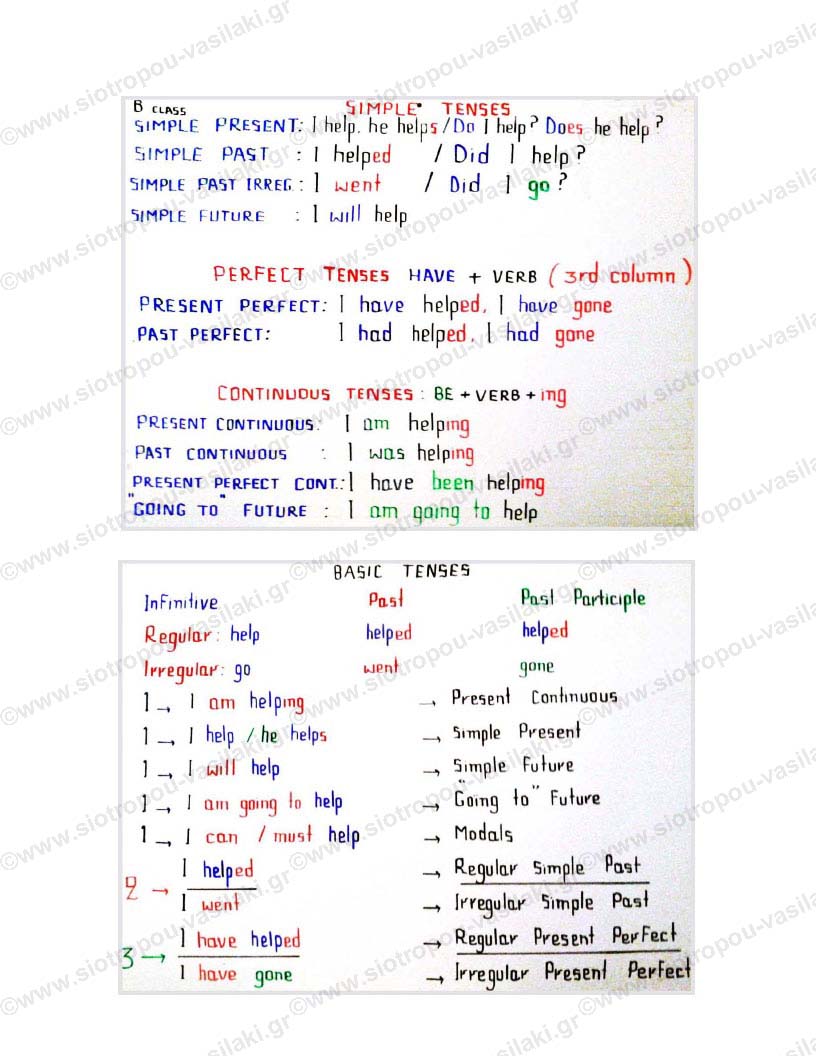 B CLASS SIMPLE TENSES
SIMPLE PRESENT: I help. he helps / Do I help? Does he help?
SIMPLE PAST : I helped / Did I help?
SIMPLE PAST IRREG: I went / Did I go?
SIMPLE FUTURE : I will help
PERFECT TENSES HAVE + VERB (3rd column)
PRESENT PERFECT: I have helped, I have gone
PAST PERFECT: I had helped, I had gone
CONTINUOUS TENSES : BE + VERB + ing
PRESENT CONTINUOUS: I am helping
PAST CONTINUOUS : I was helping
PRESENT PERFECT CONT.: I have been helping
"GOING TO" FUTURE : I am going to help
BASIC TENSES
Infinitive Past Past Participle
Regular: help helped helped
Irregular: go went gone
1 → I am helping → Present Continuous
1 → I help / he helps → Simple Present
1 → I will help → Simple Future
1 → I am going to help → "Going to" Future
1 → I can / must help → Modals
2 → I helped → Regular Simple Past
I went → Irregular Simple Past
3 → I have helped → Regular Present Perfect
I have gone → Irregular Present Perfect
©www.siotropou-vasilaki.gr